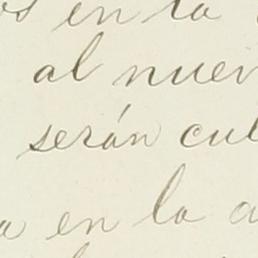 os en la
al nuev
serán cul
a en la a